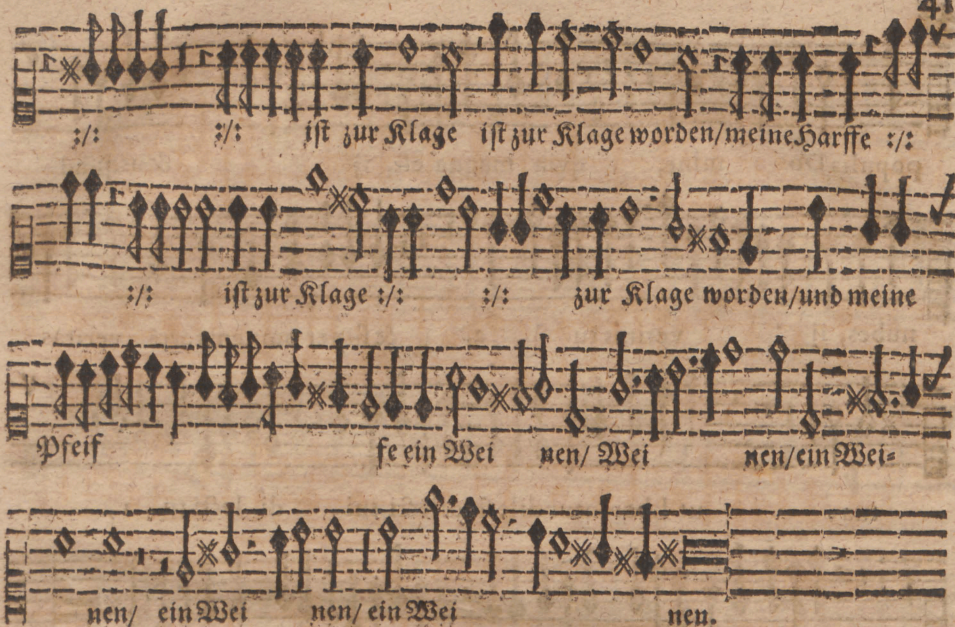 41
:/: :/: ist zur Klage ist zur Klage worden/meine Harffe :/:
:/: ist zur Klage :/: :/: zur Klage worden/und meine
Pfeif fe ein Wei nen/ Wei nen/ein Wei-
nen/ ein Wei nen/ ein Wei nen.